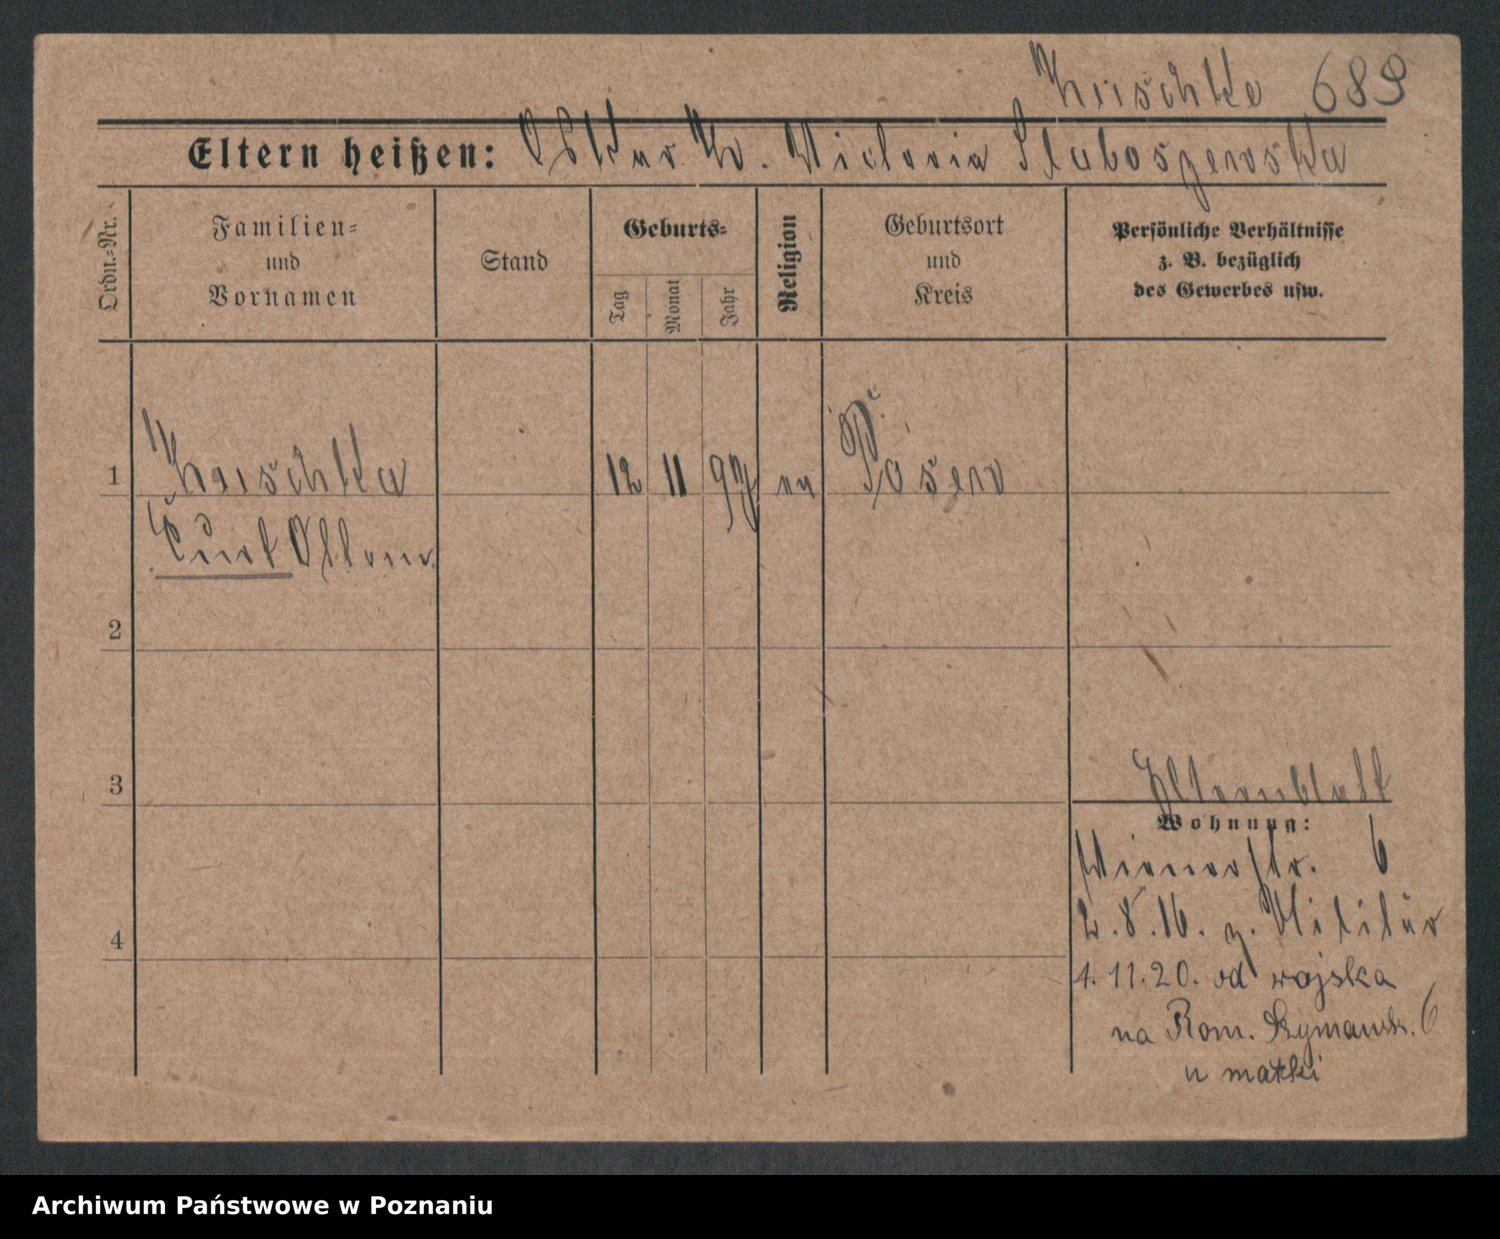 Kruschke 689
Eltern heißen: Oskar Kr. Victoria Staboszewska
Ordn.-Nr.
Familien-
und
Vornamen
Stand
Geburts-
Tag
Monat
Jahr
Religion
Geburtsort
und
Kreis
Persönliche Verhältnisse
z. B. bezüglich
des Gewerbes usw.
1 Kruschke 12 11 97 ev Posen
Curt
2
3
Elternblatt
Wohnung:
Wienerstr. 6
2.8.16. z. Militär
4
1.11.20. od wojska
na Rom. Szymańsk. 6
u matki
Archiwum Państwowe w Poznaniu